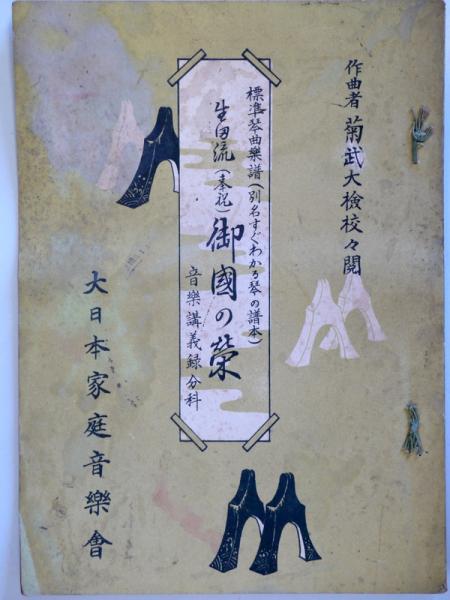 作曲者 菊武大檢校々閲
標準琴曲樂譜(別名すぐわかる琴の譜本)
生田流(奉祝)御國の榮
音樂講義録分科
大日本家庭音樂會